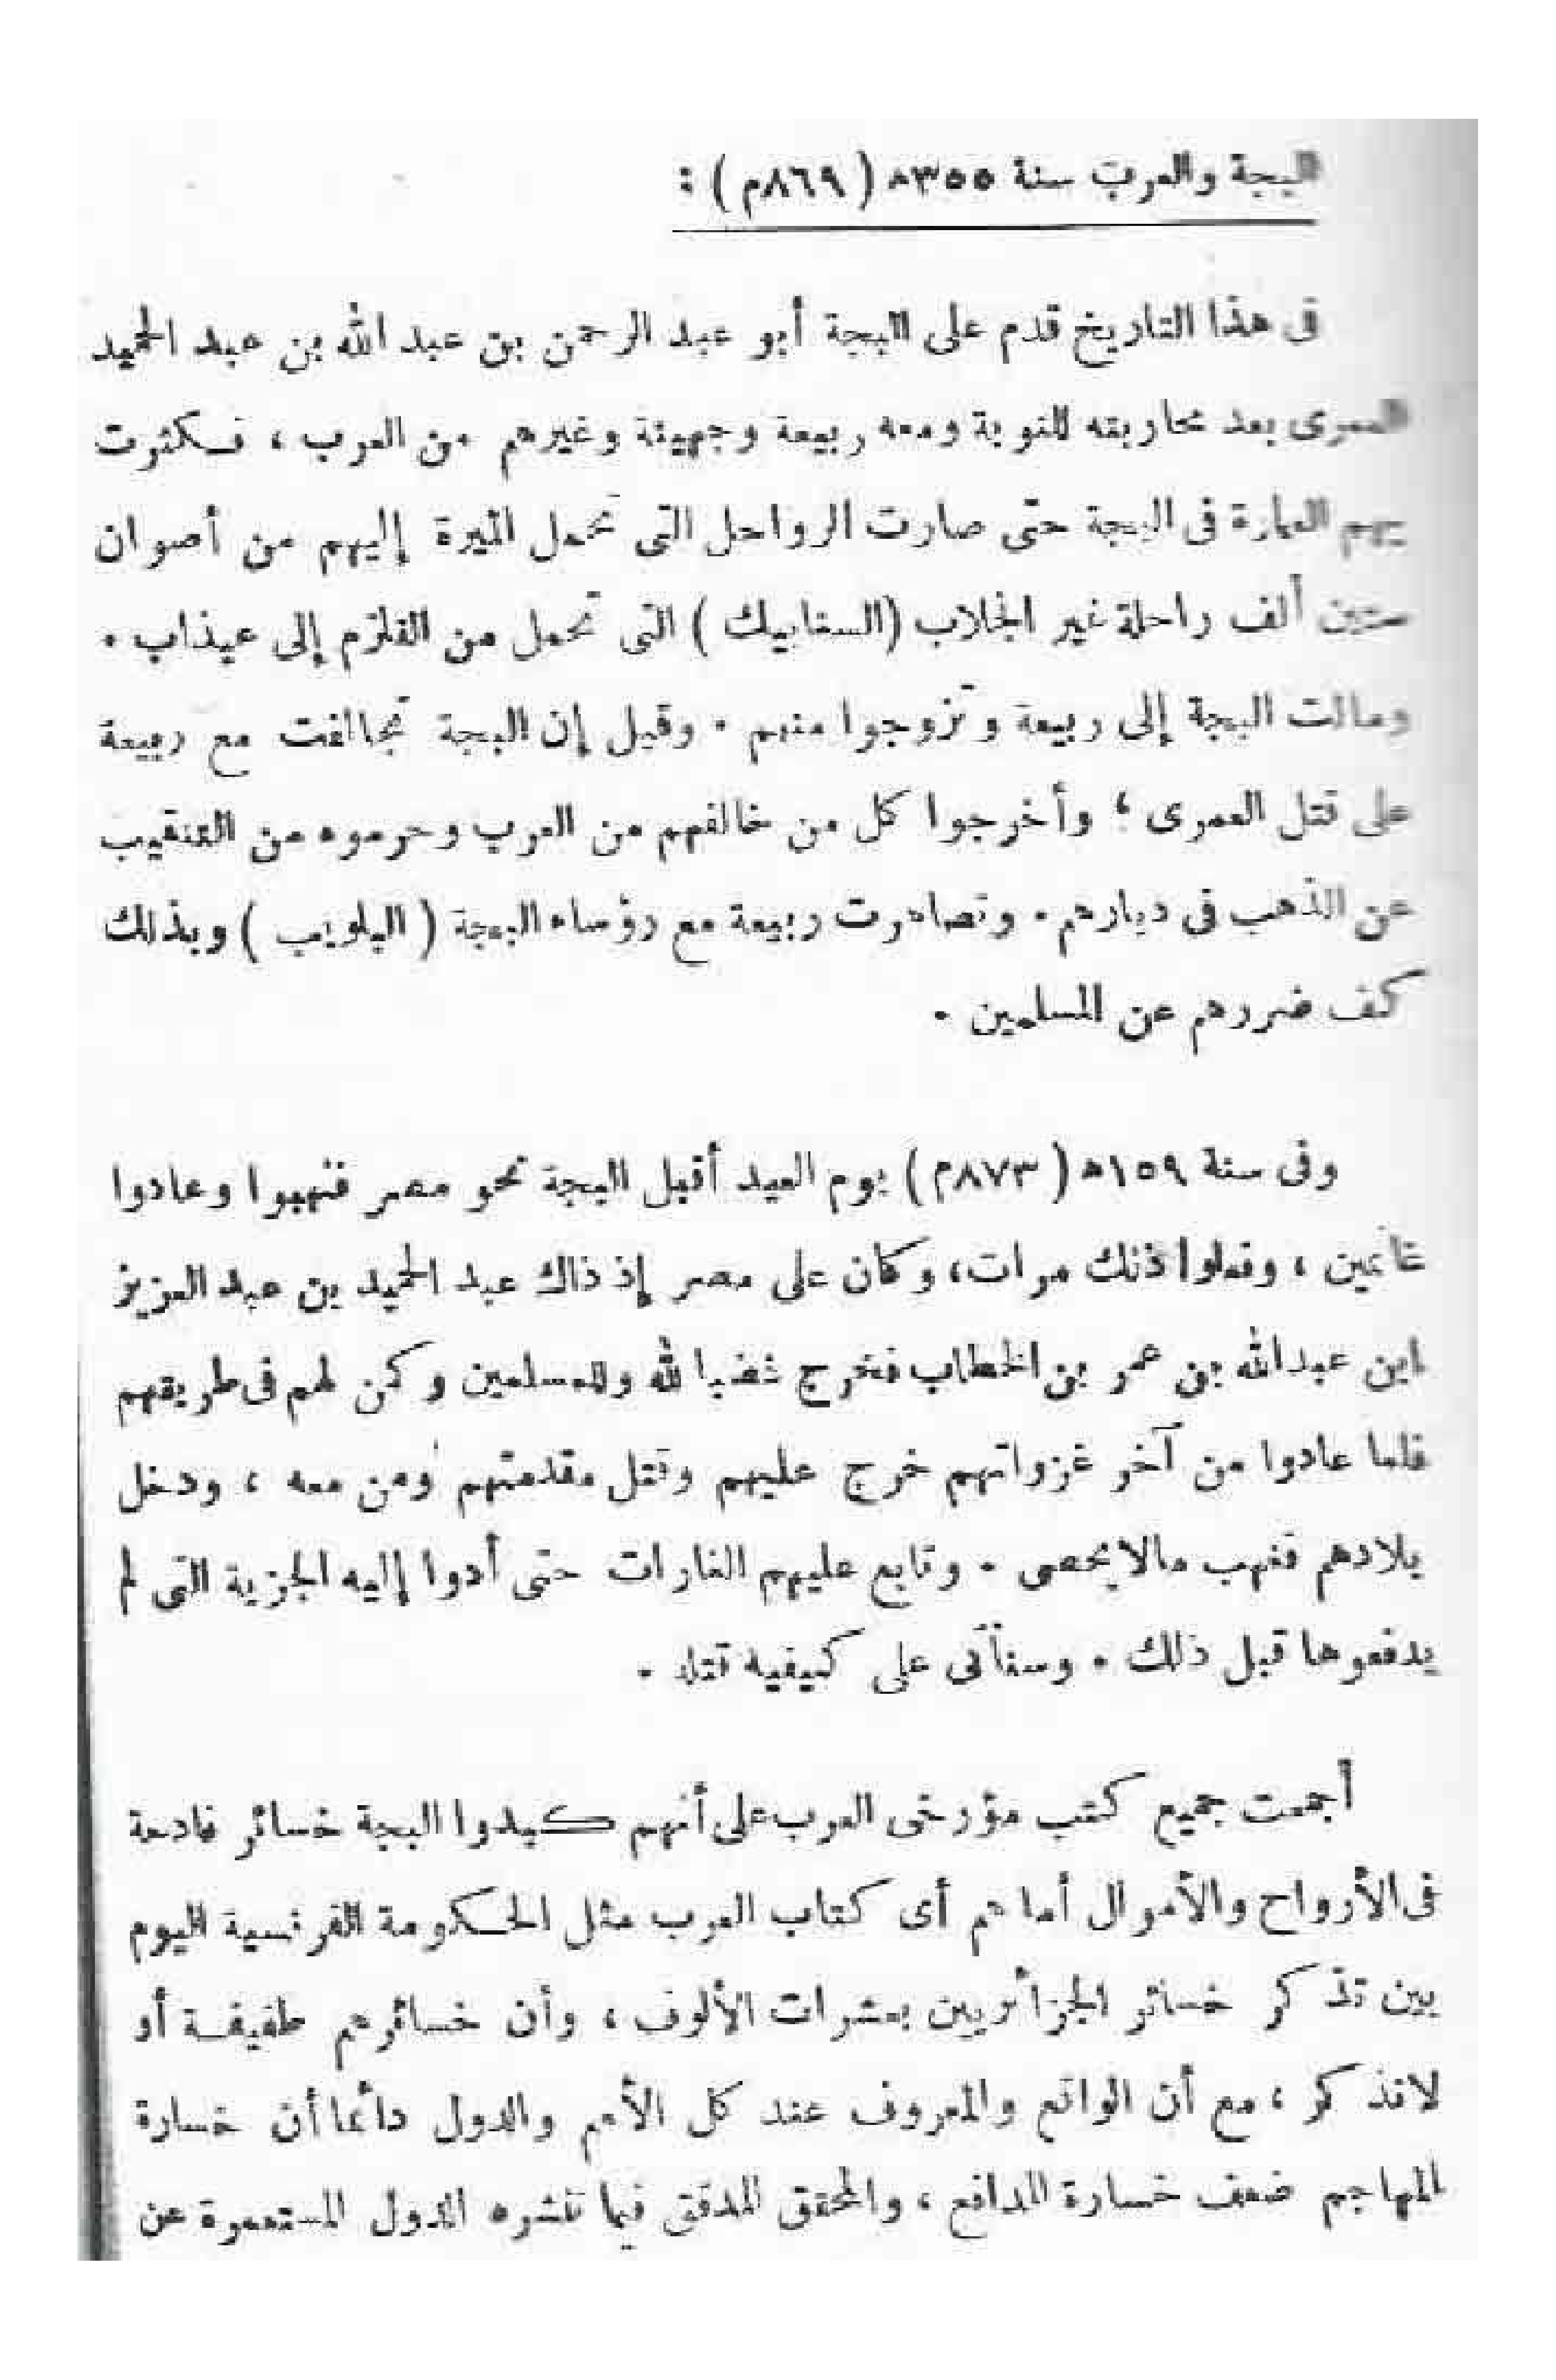 البجة والعرب سنة ٣٥٥ه ( ٨٦٩م ) :
فى هذا التاريخ قدم على البجة أبو عبد الرحمن بن عبد الله بن عبد الحميد
العمرى بعد محاربته للنوبة ومعه ربيعة وجهينة وغيرهم من العرب ، فكثرت
بهم العمارة فى البجة حتى صارت الرواحل التى تحمل الميرة إليهم من أصوان
ستين ألف راحلة غير الجلاب (السنابيك ) التى تحمل من القلزم إلى عيذاب .
ومالت البجة إلى ربيعة وتزوجوا منهم . وقيل إن البجة تحالفت مع ربيعة
على قتل العمرى ؛ وأخرجوا كل من خالفهم من العرب وحرموه من التنقيب
عن الذهب فى ديارهم . وتصاهرت ربيعة مع رؤساء البجة ( البلويب ) وبذلك
كف ضررهم عن المسلمين .
وفى سنة ١٥٩ه ( ٨٧٣م ) يوم العيد أقبل البجة نحو مصر فنهبوا وعادوا
غانمين ، وفعلوا ذلك مرات ، وكان على مصر إذ ذاك عبد الحميد بن عبد العزيز
ابن عبد الله بن عمر بن الخطاب فخرج غضبا لله وللمسلمين وكمن لهم فى طريقهم
فلما عادوا من آخر غزواتهم خرج عليهم وقتل مقدمتهم ومن معه ، ودخل
بلادهم فنهب مالا يحصى . وتابع عليهم الغارات حتى أدوا إليه الجزية التى لم
يدفعوها قبل ذلك . وسنأتى على كيفية قتله .
أجمعت جميع كتب مؤرخى العرب على أنهم كبدوا البجة خسائر فادحة
فى الأرواح والأموال أما هم أى كتاب العرب مثل الحكومة الفرنسية اليوم
بين تذكر خسائر الجزائريين بعشرات الألوف ، وأن خسائرهم طفيفة أو
لا تذكر ، مع أن الواقع والمعروف عند كل الأمم والدول دائما أن خسارة
المهاجم ضعف خسارة المدافع ، والمحقق المدقق فيما تنشره الدول المستعمرة عن